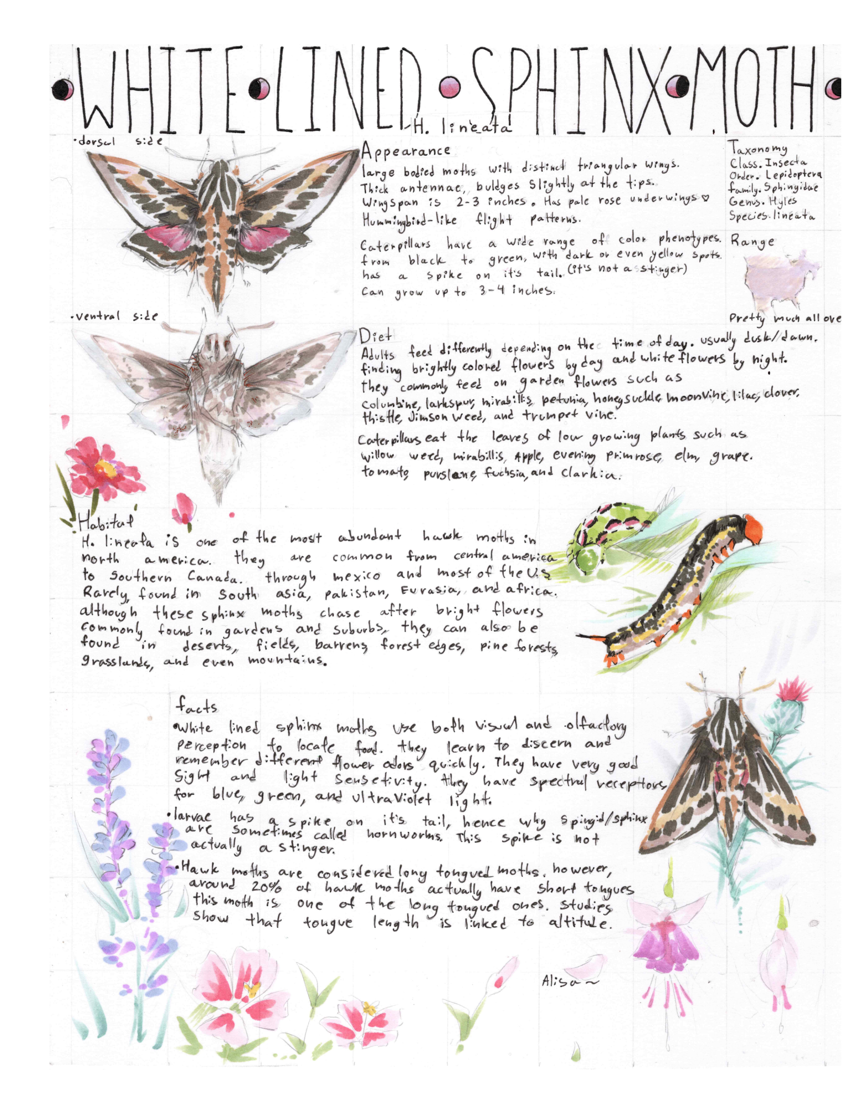 WHITE·LINED·SPHINX·MOTH
H. lineata
·dorsal side
Appearance
large bodied moths with distinct triangular wings.
Thick antennae, buldges slightly at the tips.
Wingspan is 2-3 inches. Has pale rose underwings ♡
Hummingbird-like flight patterns.
Caterpillars have a wide range of color phenotypes.
from black to green, with dark or even yellow spots.
has a spike on it's tail. (it's not a stinger)
Can grow up to 3-4 inches.
Taxonomy
Class. Insecta
Order. Lepidoptera
family. Sphingidae
Genus. Hyles
Species. lineata
Range
Pretty much all ove
·ventral side
Diet
Adults feed differently depending on the time of day. usually dusk/dawn.
finding brightly colored flowers by day and white flowers by night.
they commonly feed on garden flowers such as
columbine, larkspur, mirabilis, petunia, honeysuckle moonvine, lilac, clover,
thistle, Jimson weed, and trumpet vine.
Caterpillars eat the leaves of low growing plants such as
willow weed, mirabillis, Apple, evening primrose, elm, grape.
tomato, purslane, fuchsia, and Clarkia.
Habitat
H. lineata is one of the most abundant hawk moths in
north america. they are common from central america
to Southern Canada. through mexico and most of the U.S
Rarely, found in South asia, pakistan, Eurasia, and africa.
although these sphinx moths chase after bright flowers
commonly found in gardens and suburbs, they can also be
found in deserts, fields, barrens, forest edges, pine forests,
grasslands, and even mountains.
facts
·White lined sphinx moths use both visual and olfactory
perception to locate food. they learn to discern and
remember different flower odors quickly. They have very good
Sight and light sensetivity. they have spectral receptors
for blue, green, and ultraviolet light.
·larvae has a spike on it's tail, hence why spingid/sphinx
are sometimes called hornworms. This spike is not
actually a stinger.
·Hawk moths are considered long tongued moths. however,
around 20% of hawk moths actually have short tongues
this moth is one of the long tongued ones. Studies
Show that tongue length is linked to altitude.
Alisa~